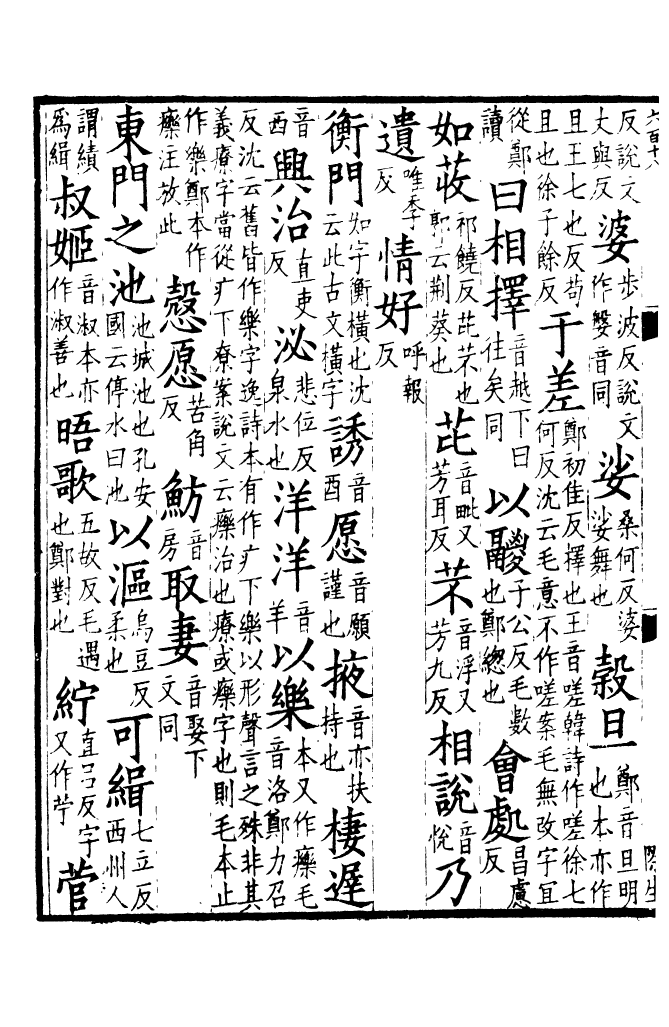 反說文丈與反婆步波反說文作媻音同娑桑何反婆娑舞也榖旦鄭音旦明也本亦作
且王七也反苟且也徐子餘反于差鄭初佳反擇也王音嗟韓詩作嗟徐七何反沈云毛意不作嗟案毛無改字宜
從鄭讀曰相擇音越下曰往矣同以鬷子公反毛數也鄭緫也會處昌慮反
如荍祁饒反芘芣也郭云荆葵也芘音毗又芳耳反芣音浮又芳九反相說音悅乃
遺唯季反情好呼報反
衡門如字衡橫也沈云此古文橫字誘音酉愿音願謹也掖音亦扶持也棲遲
音西興治直吏反泌悲位反泉水也洋洋音羊以樂本又作𤻲毛音洛鄭力召
反沈云舊皆作樂字逸詩本有作疒下樂以形聲言之殊非其義療字當從疒下尞案說文云𤻲治也療或𤻲字也則毛本止
作樂鄭本作𤻲注放此慤愿苦角反魴音房取妻音娶下文同
東門之池池城池也孔安國云停水曰池以漚烏豆反柔也可緝七立反西州人
謂績為緝叔姬音淑本亦作淑善也晤歌五故反毛遇也鄭對也紵直呂反字又作苧菅